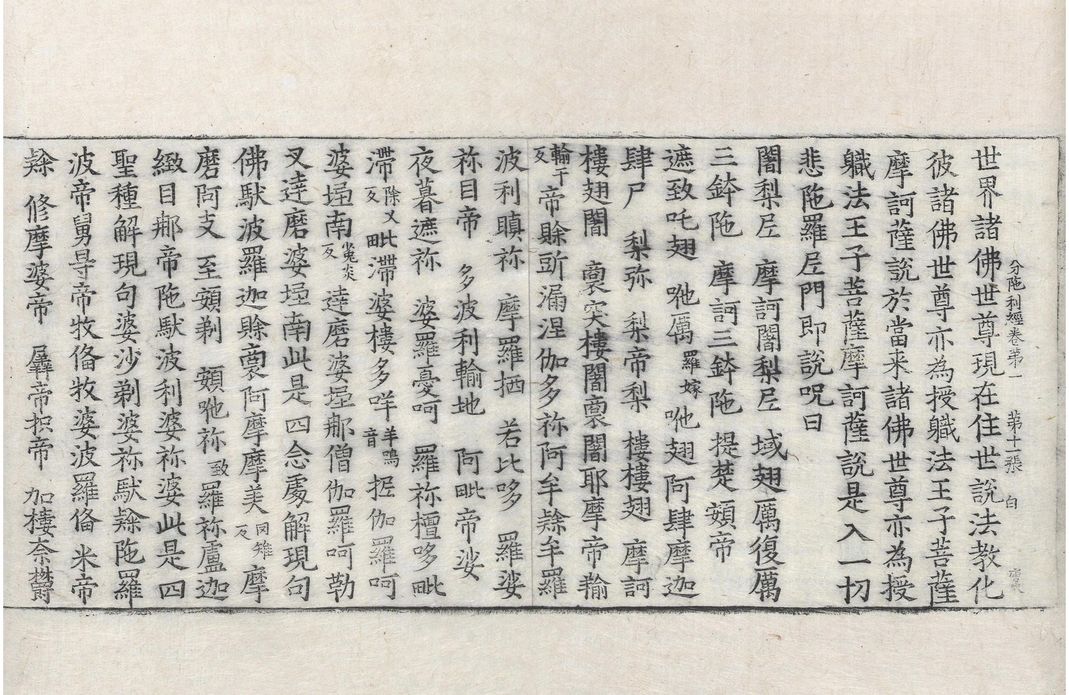 世界諸佛世尊現在住世說法教化
分陁利經卷第一 第十二張 白
彼諸佛世尊亦為授職法王子菩薩
摩訶薩說於當来諸佛世尊亦為授
軄法王子菩薩摩訶薩說是入一切
悲陁羅𡰱門即說呪曰
闍梨𡰱 摩訶闍梨𡰱 域翅厲復厲
三鉢陁 摩訶三鉢陁 提楚頞帝
遮致吒翅 吔厲 羅嫁 吔翅阿肆摩迦
肆尸 梨弥 梨帝梨 樓樓翅 摩訶
樓翅闍 裏突樓闍裏闍耶摩帝輸
輸干反 帝賒 漏涅伽多祢阿牟 牟羅
波利瞋祢 摩羅栖 若比哆 羅娑
祢目帝 多波利輸地 阿毗帝娑
夜暮遮祢 婆羅憂呵 羅祢檀哆毗
滯 除乂反 毗滯婆樓多咩 羊鳴音 抳伽羅呵
婆埵南 反 達磨婆埵那僧伽羅呵勒
叉達磨婆埵南此是四念處解現句
佛馱波羅迦賒裏阿摩摩美 反 摩
磨阿支 至頞剃 頞吔祢 致 羅祢盧迦
緻目那帝陁馱波利婆祢婆此是四
聖種解現句婆沙剃婆祢馱 陁羅
波帝舅㝵帝牧俻牧婆波羅俻 米帝
修摩婆帝 羼帝抧帝 加樓奈欝